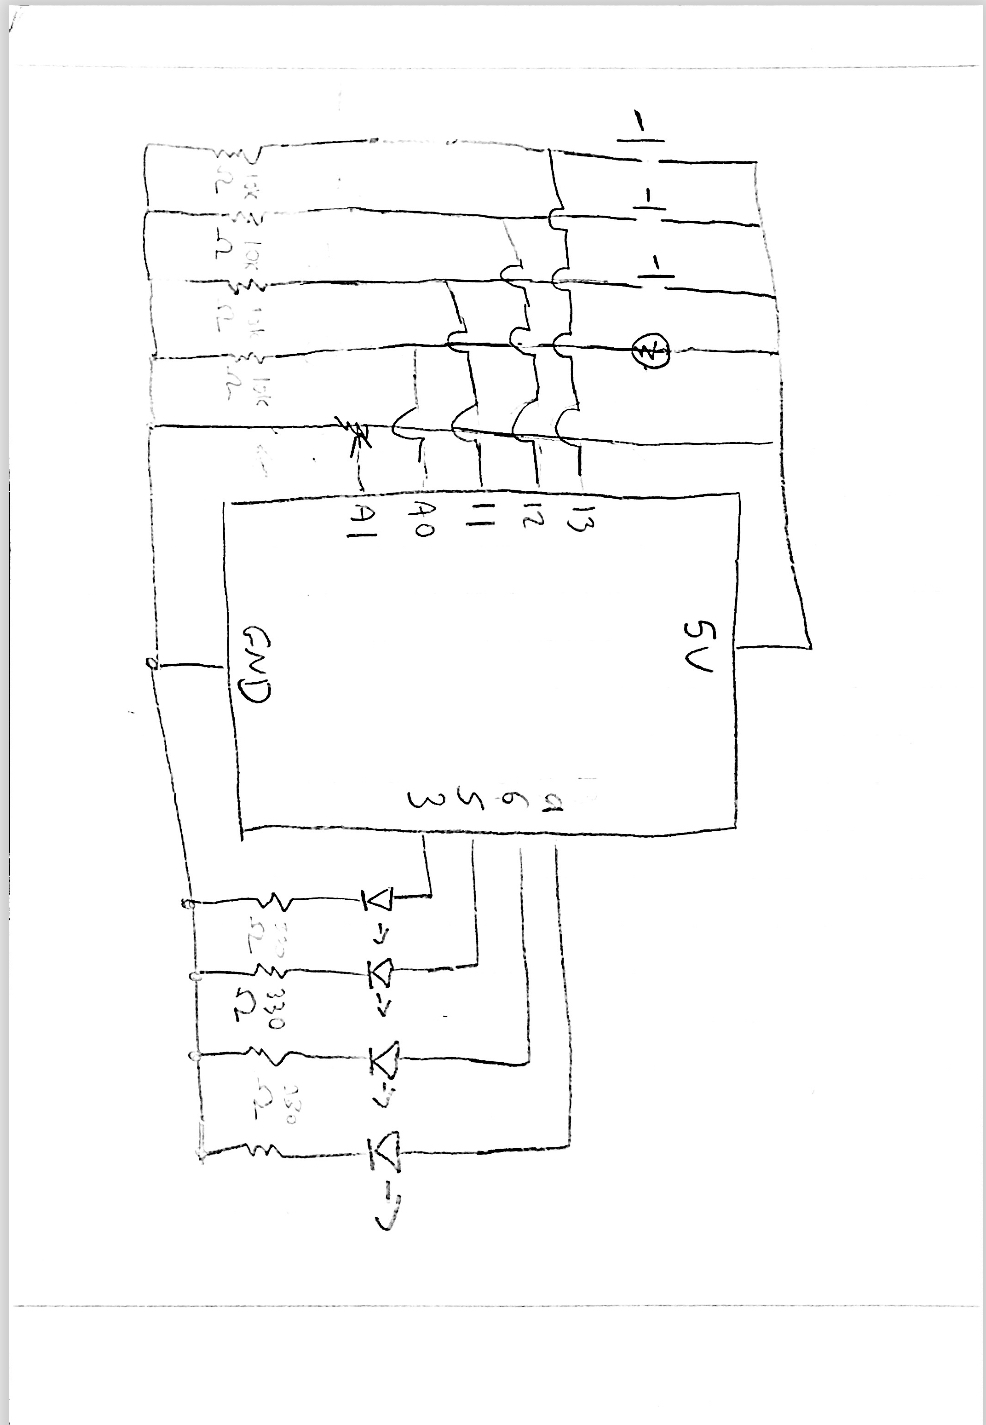 10K
Ω
10K
Ω
10K
Ω
10K
Ω
A1
A0
11
12
13
GND
5V
3
5
6
9
330
Ω
330
Ω
330
Ω